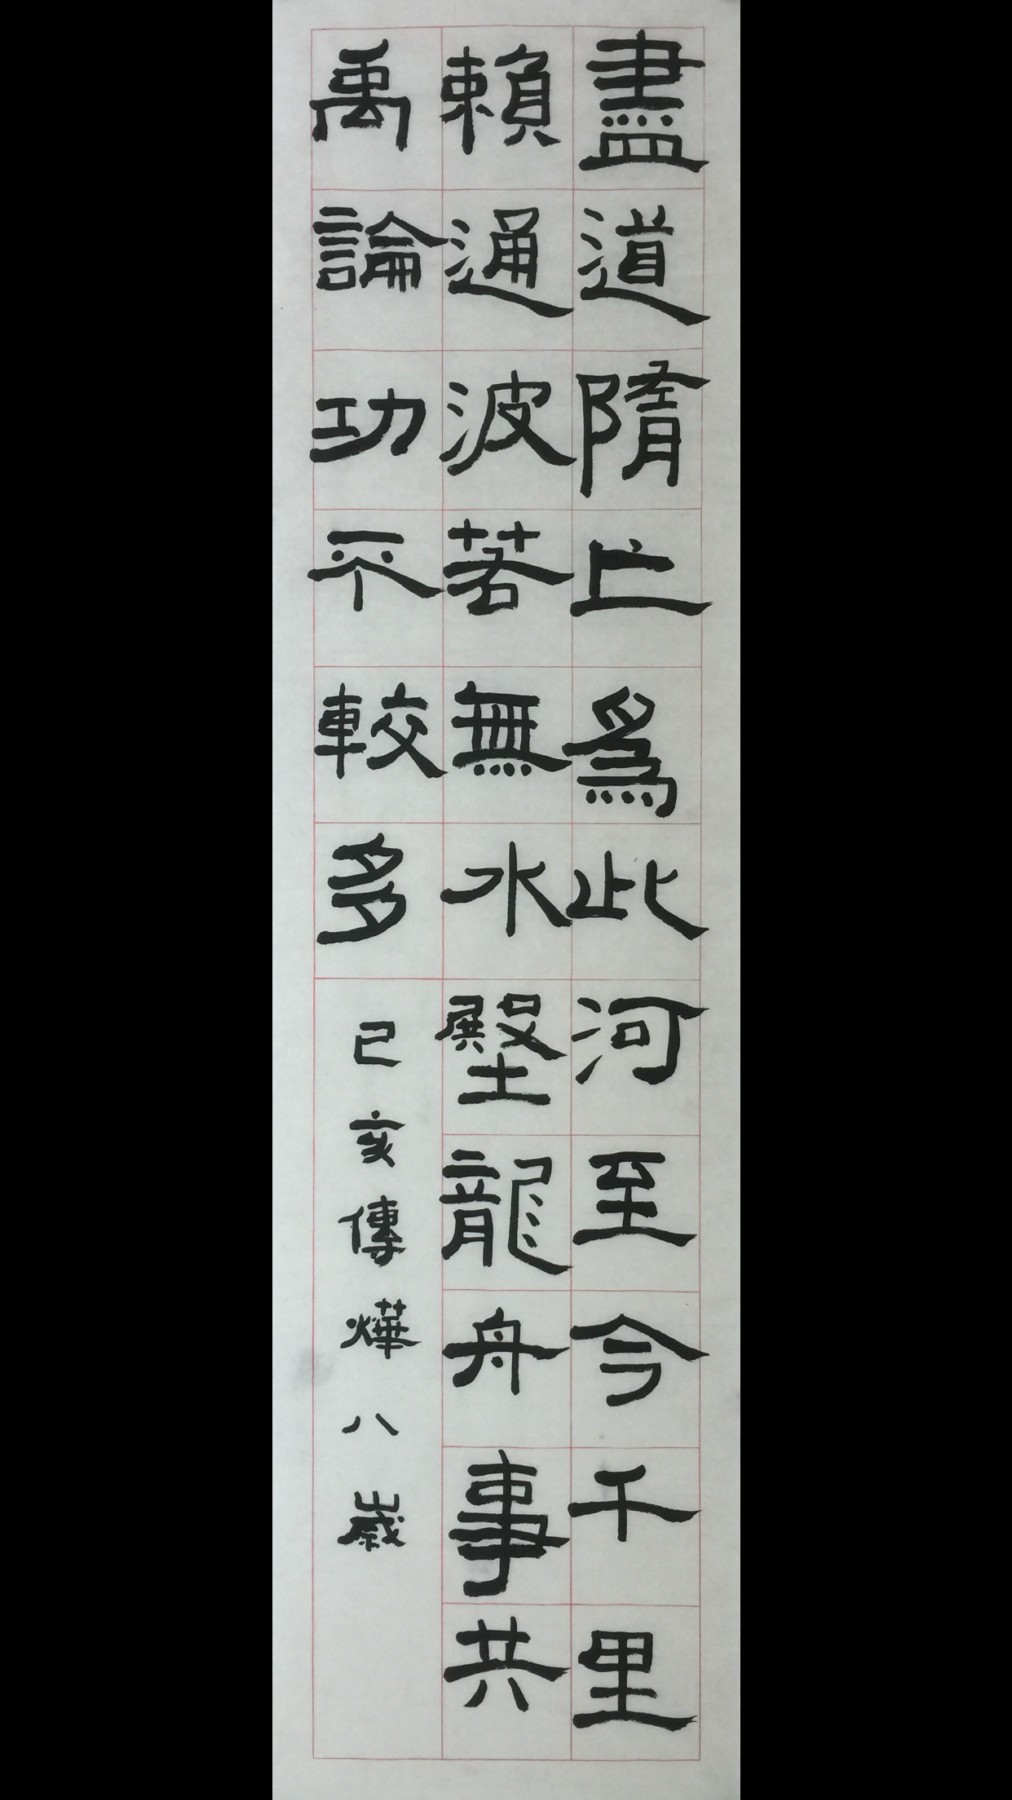 盡道隋亡爲此河至今千里
賴通波若無水殿龍舟事共
禹論功不較多
己亥傅燁八歲